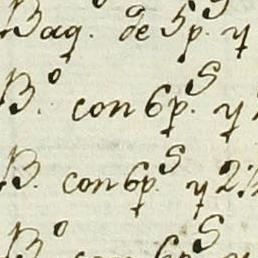 Baq. de 5p.S y
B.o con 6p.S y
B. con 6p.S y 2
B.o con 6p.S y